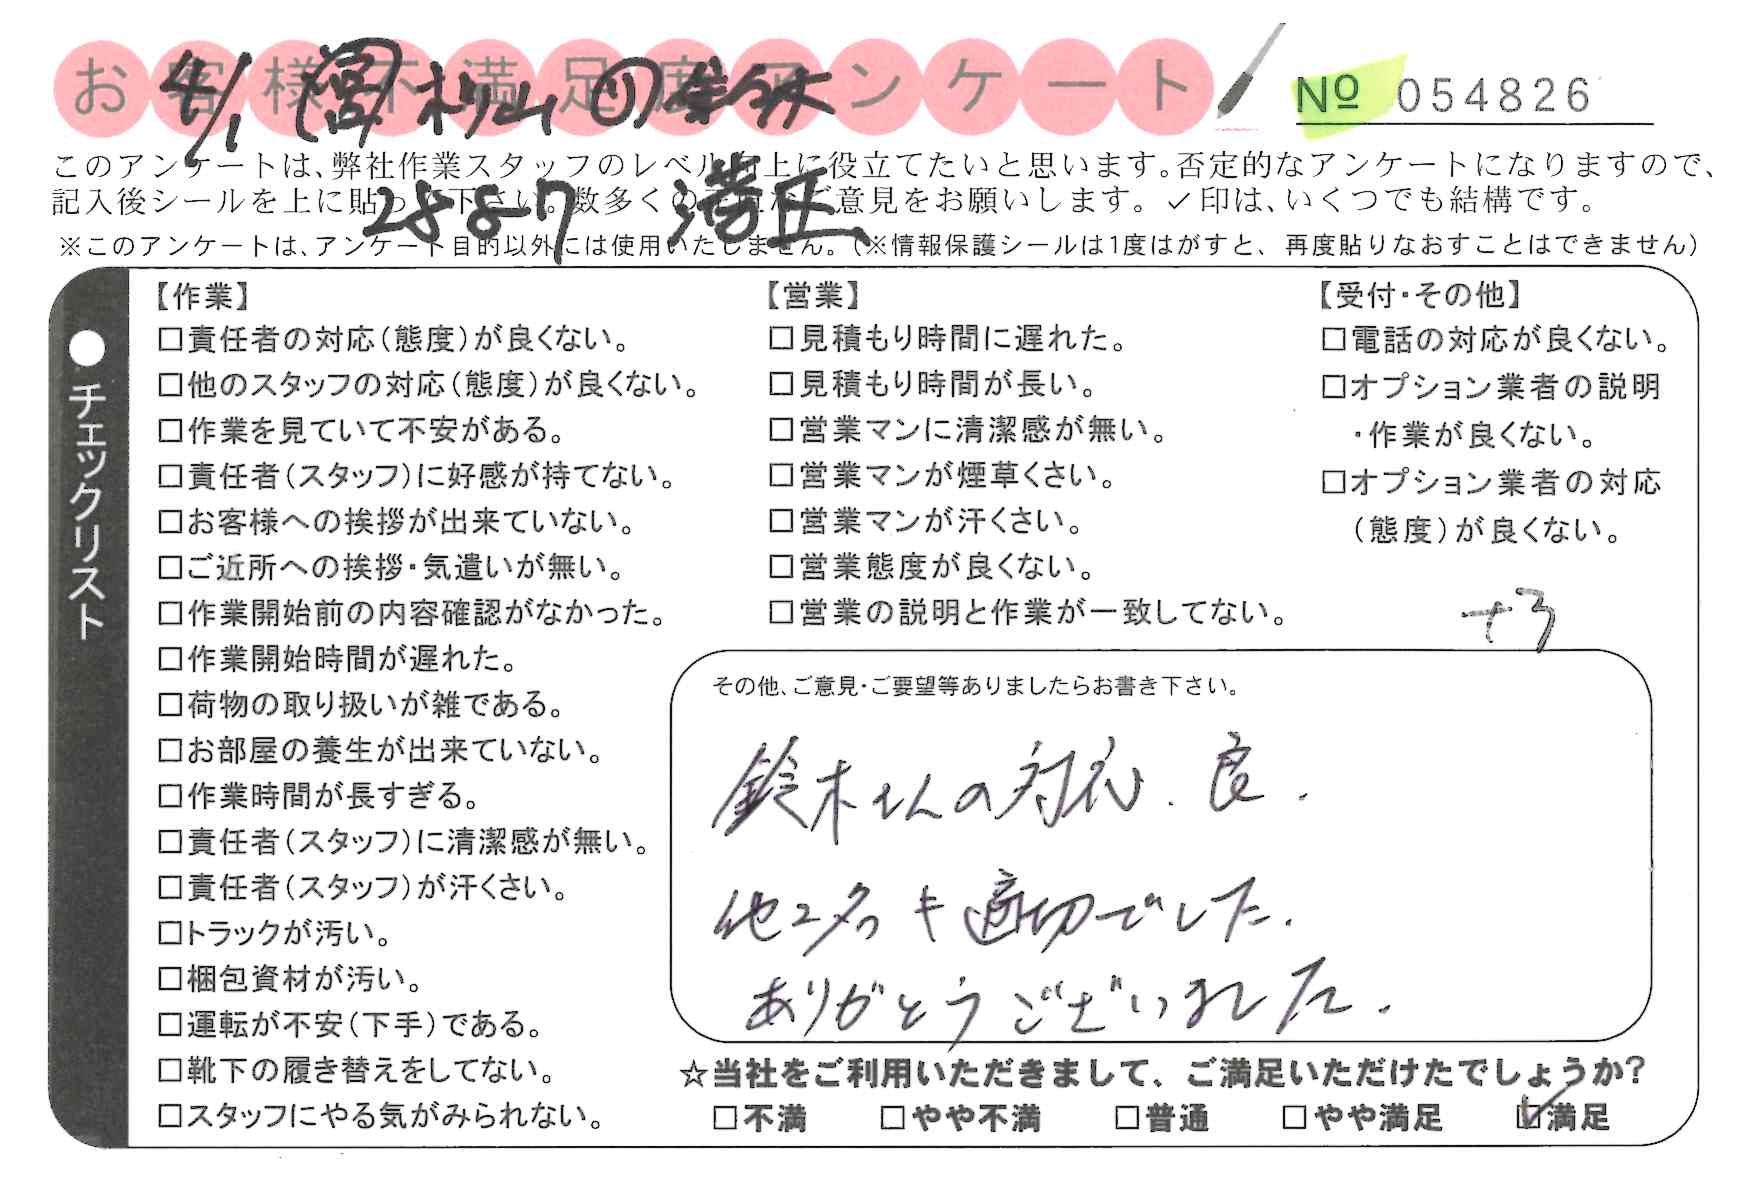 お客様不満足度アンケート
№ 054826
4/1 杉山 鈴木
このアンケートは、弊社作業スタッフのレベル向上に役立てたいと思います。否定的なアンケートになりますので、
記入後シールを上に貼って下さい。数多くの正直なご意見をお願いします。✓印は、いくつでも結構です。
2887 港区
※このアンケートは、アンケート目的以外には使用いたしません。(※情報保護シールは1度はがすと、再度貼りなおすことはできません)
●チェックリスト
【作業】
□責任者の対応(態度)が良くない。
□他のスタッフの対応(態度)が良くない。
□作業を見ていて不安がある。
□責任者(スタッフ)に好感が持てない。
□お客様への挨拶が出来ていない。
□ご近所への挨拶・気遣いが無い。
□作業開始前の内容確認がなかった。
□作業開始時間が遅れた。
□荷物の取り扱いが雑である。
□お部屋の養生が出来ていない。
□作業時間が長すぎる。
□責任者(スタッフ)に清潔感が無い。
□責任者(スタッフ)が汗くさい。
□トラックが汚い。
□梱包資材が汚い。
□運転が不安(下手)である。
□靴下の履き替えをしてない。
□スタッフにやる気がみられない。
【営業】
□見積もり時間に遅れた。
□見積もり時間が長い。
□営業マンに清潔感が無い。
□営業マンが煙草くさい。
□営業マンが汗くさい。
□営業態度が良くない。
□営業の説明と作業が一致してない。
【受付・その他】
□電話の対応が良くない。
□オプション業者の説明
・作業が良くない。
□オプション業者の対応
(態度)が良くない。
+3
その他、ご意見・ご要望等ありましたらお書き下さい。
鈴木さんの対応、良.
他2名も適切でした.
ありがとうございました.
☆当社をご利用いただきまして、ご満足いただけたでしょうか?
□不満 □やや不満 □普通 □やや満足 ☑満足